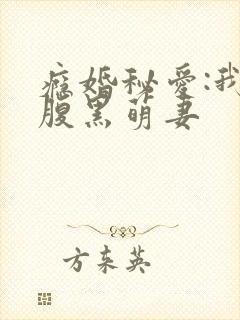 症婚秘爱:我
腹黑萌妻
方东英